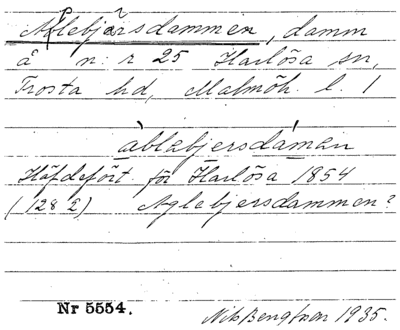 Aplebjärsdammen, damm
å n:r 25 Harlösa sn,
Frosta hd, Malmöh. l. 1
åblabjersdaman
Höfdefört. för Harlösa 1854
(128 2) Aglebjersdammen?
Nr 5554.
Nils Bengtson 1935.